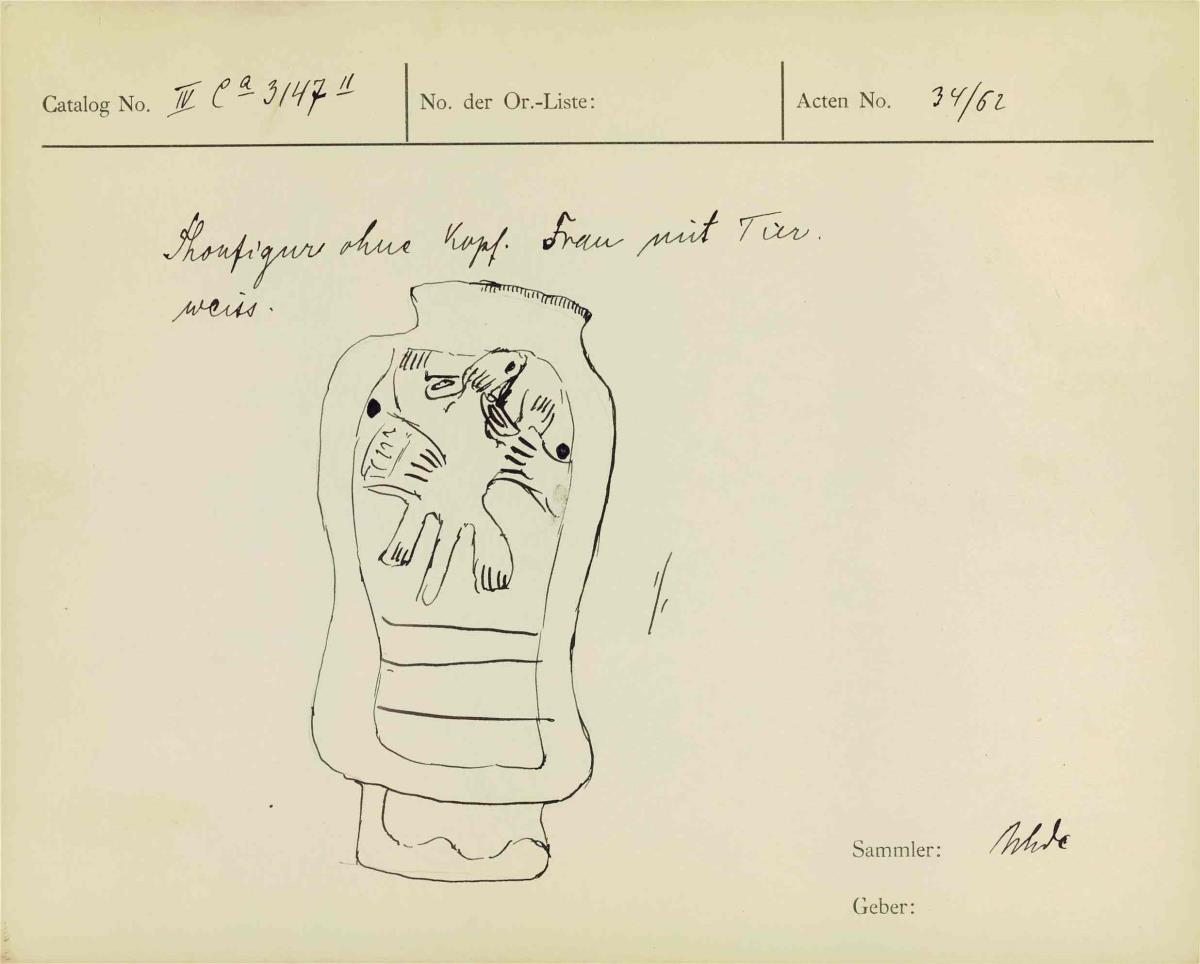 Catalog No. IV Ca 3147 II
No. der Or.-Liste:
Acten No. 34/62
Thonfigur ohne Kopf. Frau mit Tier.
weiss.
1/1
Sammler: Uhde
Geber: